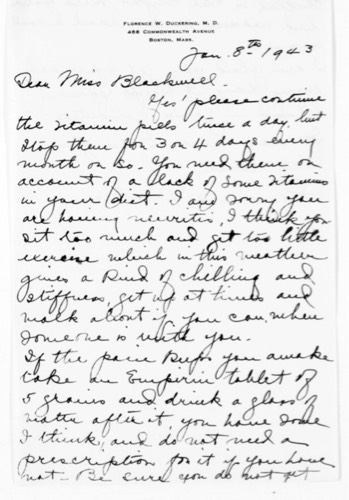 FLORENCE W. DUCKERING, M. D.
468 COMMONWEALTH AVENUE
BOSTON, MASS.
Jan. 8th 1943
Dear Miss Blackwell.
Yes' please continue
the vitamin pills twice a day, but
stop them for 3 or 4 days every
month or so. You need them on
account of a lack of some vitamins
in your diet. I am sorry you
are having neuritis, I think you
sit too much and get too little
exercise which in this weather
gives a kind of chilling and
stiffness, get up at times and
walk about if you can, when
someone is with you.
If the pain keeps you awake
take an Empirin tablet of
5 grains and drink a glass of
water after it, you have some
I think, and do not need a
prescription for it if you have
not - Be sure you do not get